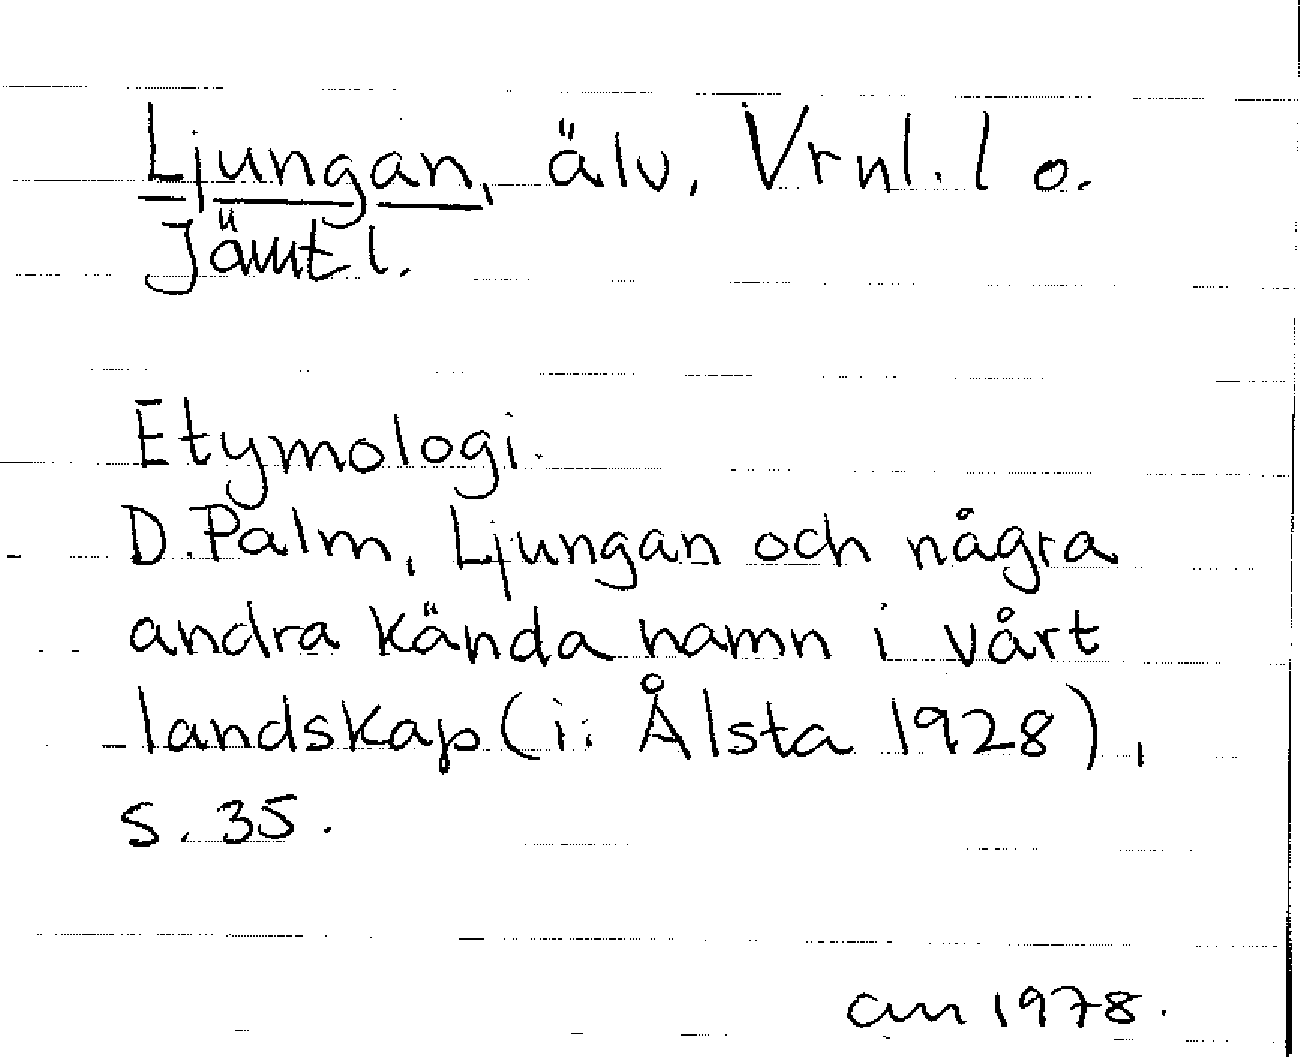 Ljungan, älv, Vrnl. l o.
Jämtl.
Etymologi.
D. Palm, Ljungan och några
andra kända namn i vårt
landskap (i: Ålsta 1928),
s. 35.
an 1978.